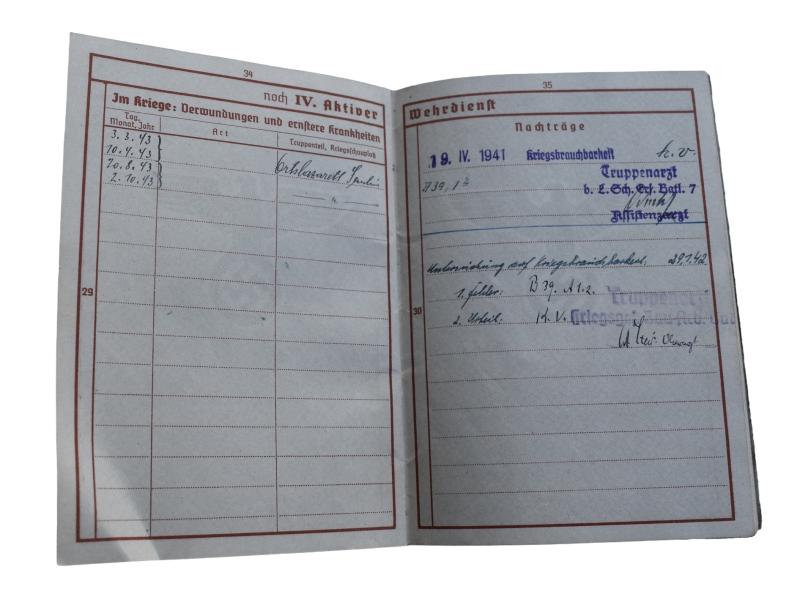 34
noch IV. Aktiver
Im Kriege: Verwundungen und ernstere Krankheiten
Tag, Monat, Jahr
Art
Truppenteil, Kriegsschauplatz
3. 3. 43
10. 4. 43
20. 8. 43
2. 10. 43
Ortslazarett
29
35
Wehrdienst
Nachträge
19. IV. 1941 Kriegsbrauchbarkeit k. v.
Truppenarzt
b. L.Sch. Ers. Batl. 7
Assistenzarzt
Untersuchung auf Kriegsbrauchbarkeit. 29.1.42
1. Fehler: B 39. A 1.2.
Truppenarzt
30
2. Urteil: K. V.